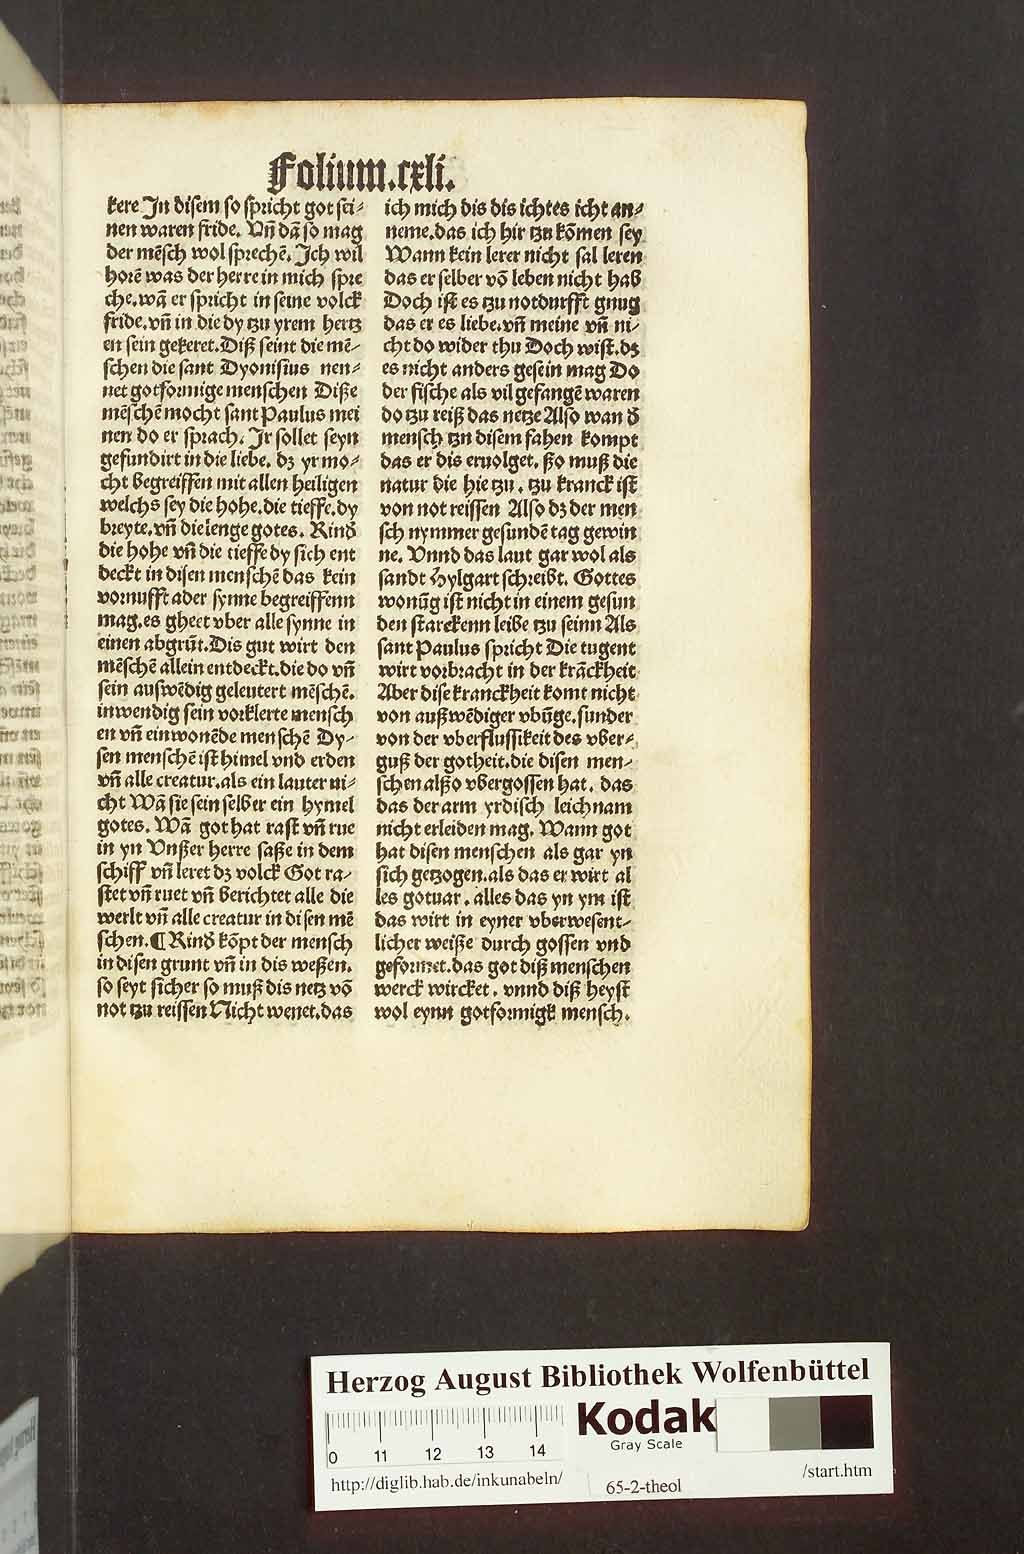 Folium.cxli.
kere In disem so spricht got sei⸗
nen waren fride. Vn̄ dā so mag
der mēsch wol sprechē. Ich wil
horē was der herre in mich spre
che. wā er spricht in seine volck
fride. vn̄ in die dy tzu yrem hertz
en sein gekeret. Diß seint die mē⸗
schen die sant Dyonisius nen⸗
net gotformige menschen Diße
mēschē mocht sant Paulus mei
nen do er sprach. Ir sollet seyn
gefundirt in die liebe. dz yr mo⸗
cht begreiffen mit allen heiligen
welchs sey die hohe. die tieffe. dy
breyte. vn̄ die lenge gotes. Kinď
die hohe vn̄ die tieffe dy sich ent
deckt in disen menschē das kein
vornufft ader synne begreiffenn
mag. es gheet vber alle synne in
einen abgrūt. Dis gut wirt den
mēschē allein entdeckt. die do vn̄
sein auswēdig geleutert mēschē.
inwendig sein vorklerte mensch
en vn̄ einwonēde menschē Dy⸗
sen menschē ist himel vnd erden
vn̄ alle creatur. als ein lauter ni⸗
cht Wā sie sein selber ein hymel
gotes. Wā got hat rast vn̄ rue
in yn Vnßer herre saße in dem
schiff vn̄ leret dz volck Got ra⸗
stet vn̄ ruet vn̄ berichtet alle die
werlt vn̄ alle creatur in disen mē
schen. ¶ Kinď kōpt der mensch
in disen grunt vn̄ in dis weßen.
so seyt sicher so muß dis netz vō
not tzu reissen Nicht wenet. das
ich mich dis dis ichtes icht an⸗
neme. das ich hir tzu kōmen sey
Wann kein lerer nicht sal leren
das er selber vō leben nicht hab
Doch ist es tzu notdurfft gnug
das er es liebe. vn̄ meine vn̄ ni⸗
cht do wider thu Doch wist. dz
es nicht anders gesein mag Do
der fische als vil gefangē waren
do tzu reiß das netze Also wan ď
mensch tzu disem fahen kompt
das er dis eruolget. ßo muß die
natur die hie tzu. tzu kranck ist
von not reissen Also dz der men
sch nymmer gesundē tag gewin
ne. Vnnd das laut gar wol als
sandt Hylgart schreibt. Gottes
wonūg ist nicht in einem gesun
den starckenn leibe tzu seinn Als
sant Paulus spricht Die tugent
wirt vorbracht in der krāckheit
Aber dise kranckheit komt nicht
von außwēdiger vbūge. sunder
von der vberflussikeit des vber⸗
guß der gotheit. die disen men⸗
schen alßo vbergossen hat. das
das der arm yrdisch leichnam
nicht erleiden mag. Wann got
hat disen menschen als gar yn
sich getzogen. als das er wirt al
les gotuar. alles das yn ym ist
das wirt in eyner vberwesent⸗
licher weiße durch gossen vnd
geformet. das got diß menschen
werck wircket. vnnd diß heyst
wol eynn gotformigk mensch.
Herzog August Bibliothek Wolfenbüttel
0 11 12 13 14
Kodak
Gray Scale
http://diglib.hab.de/inkunabeln/
65-2-theol
/start.htm